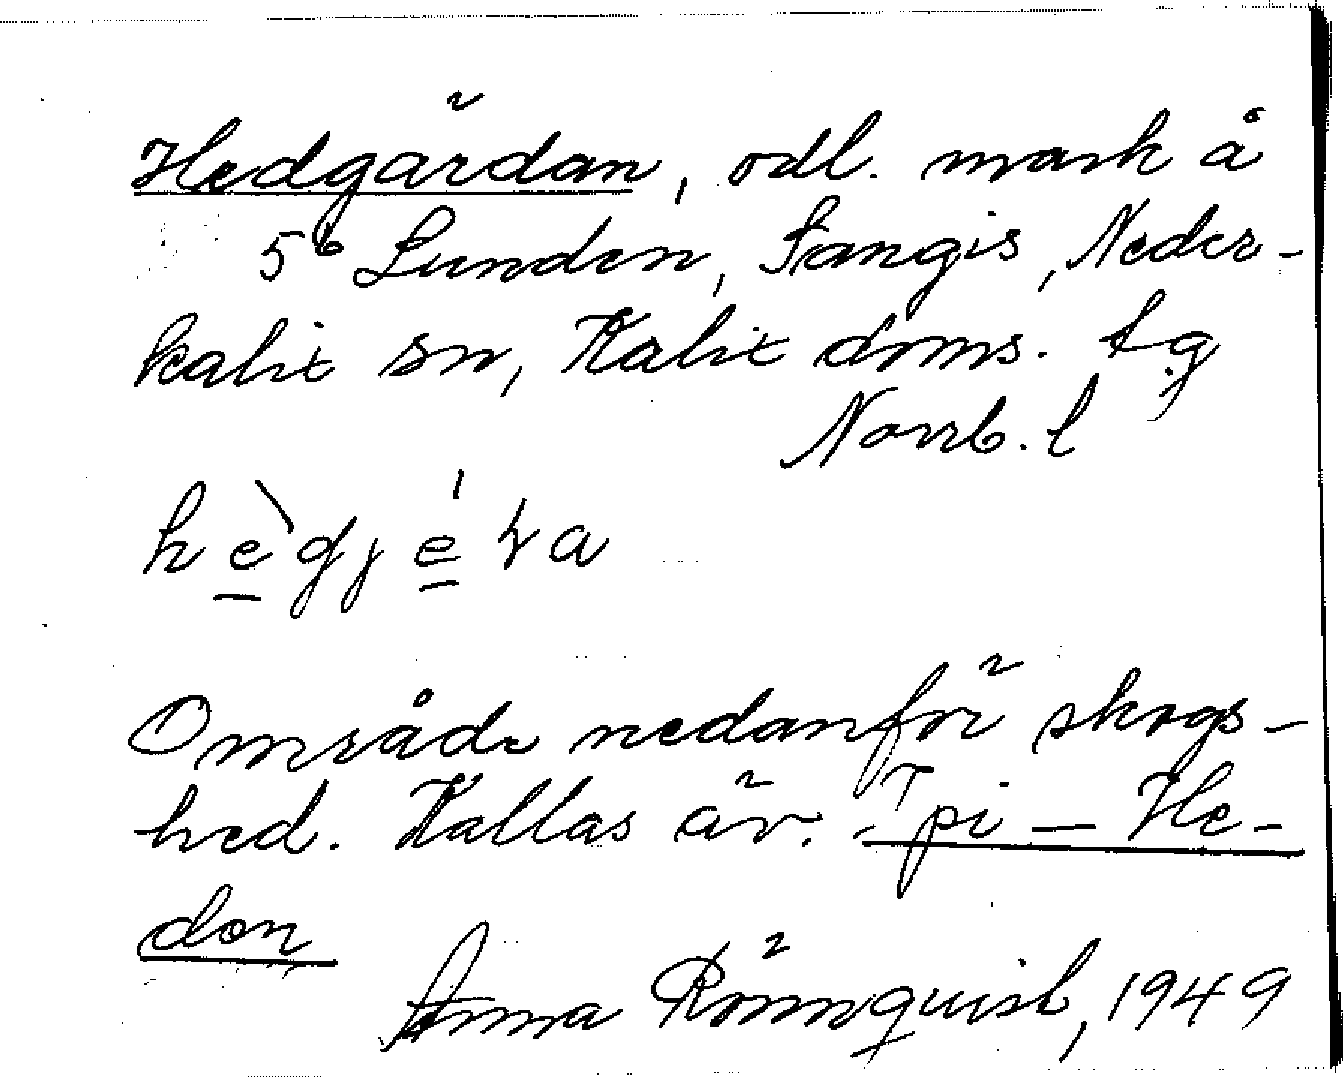 Hedgärdan, odl. mark å
5⁶ Lunden, Sangis, Neder-
kalix sn, Kalix doms. t.g
Norrb. l
Område nedanför skogs-
hed. Kallas äv. - pi - He-
don
Anna Rönnquist, 1949